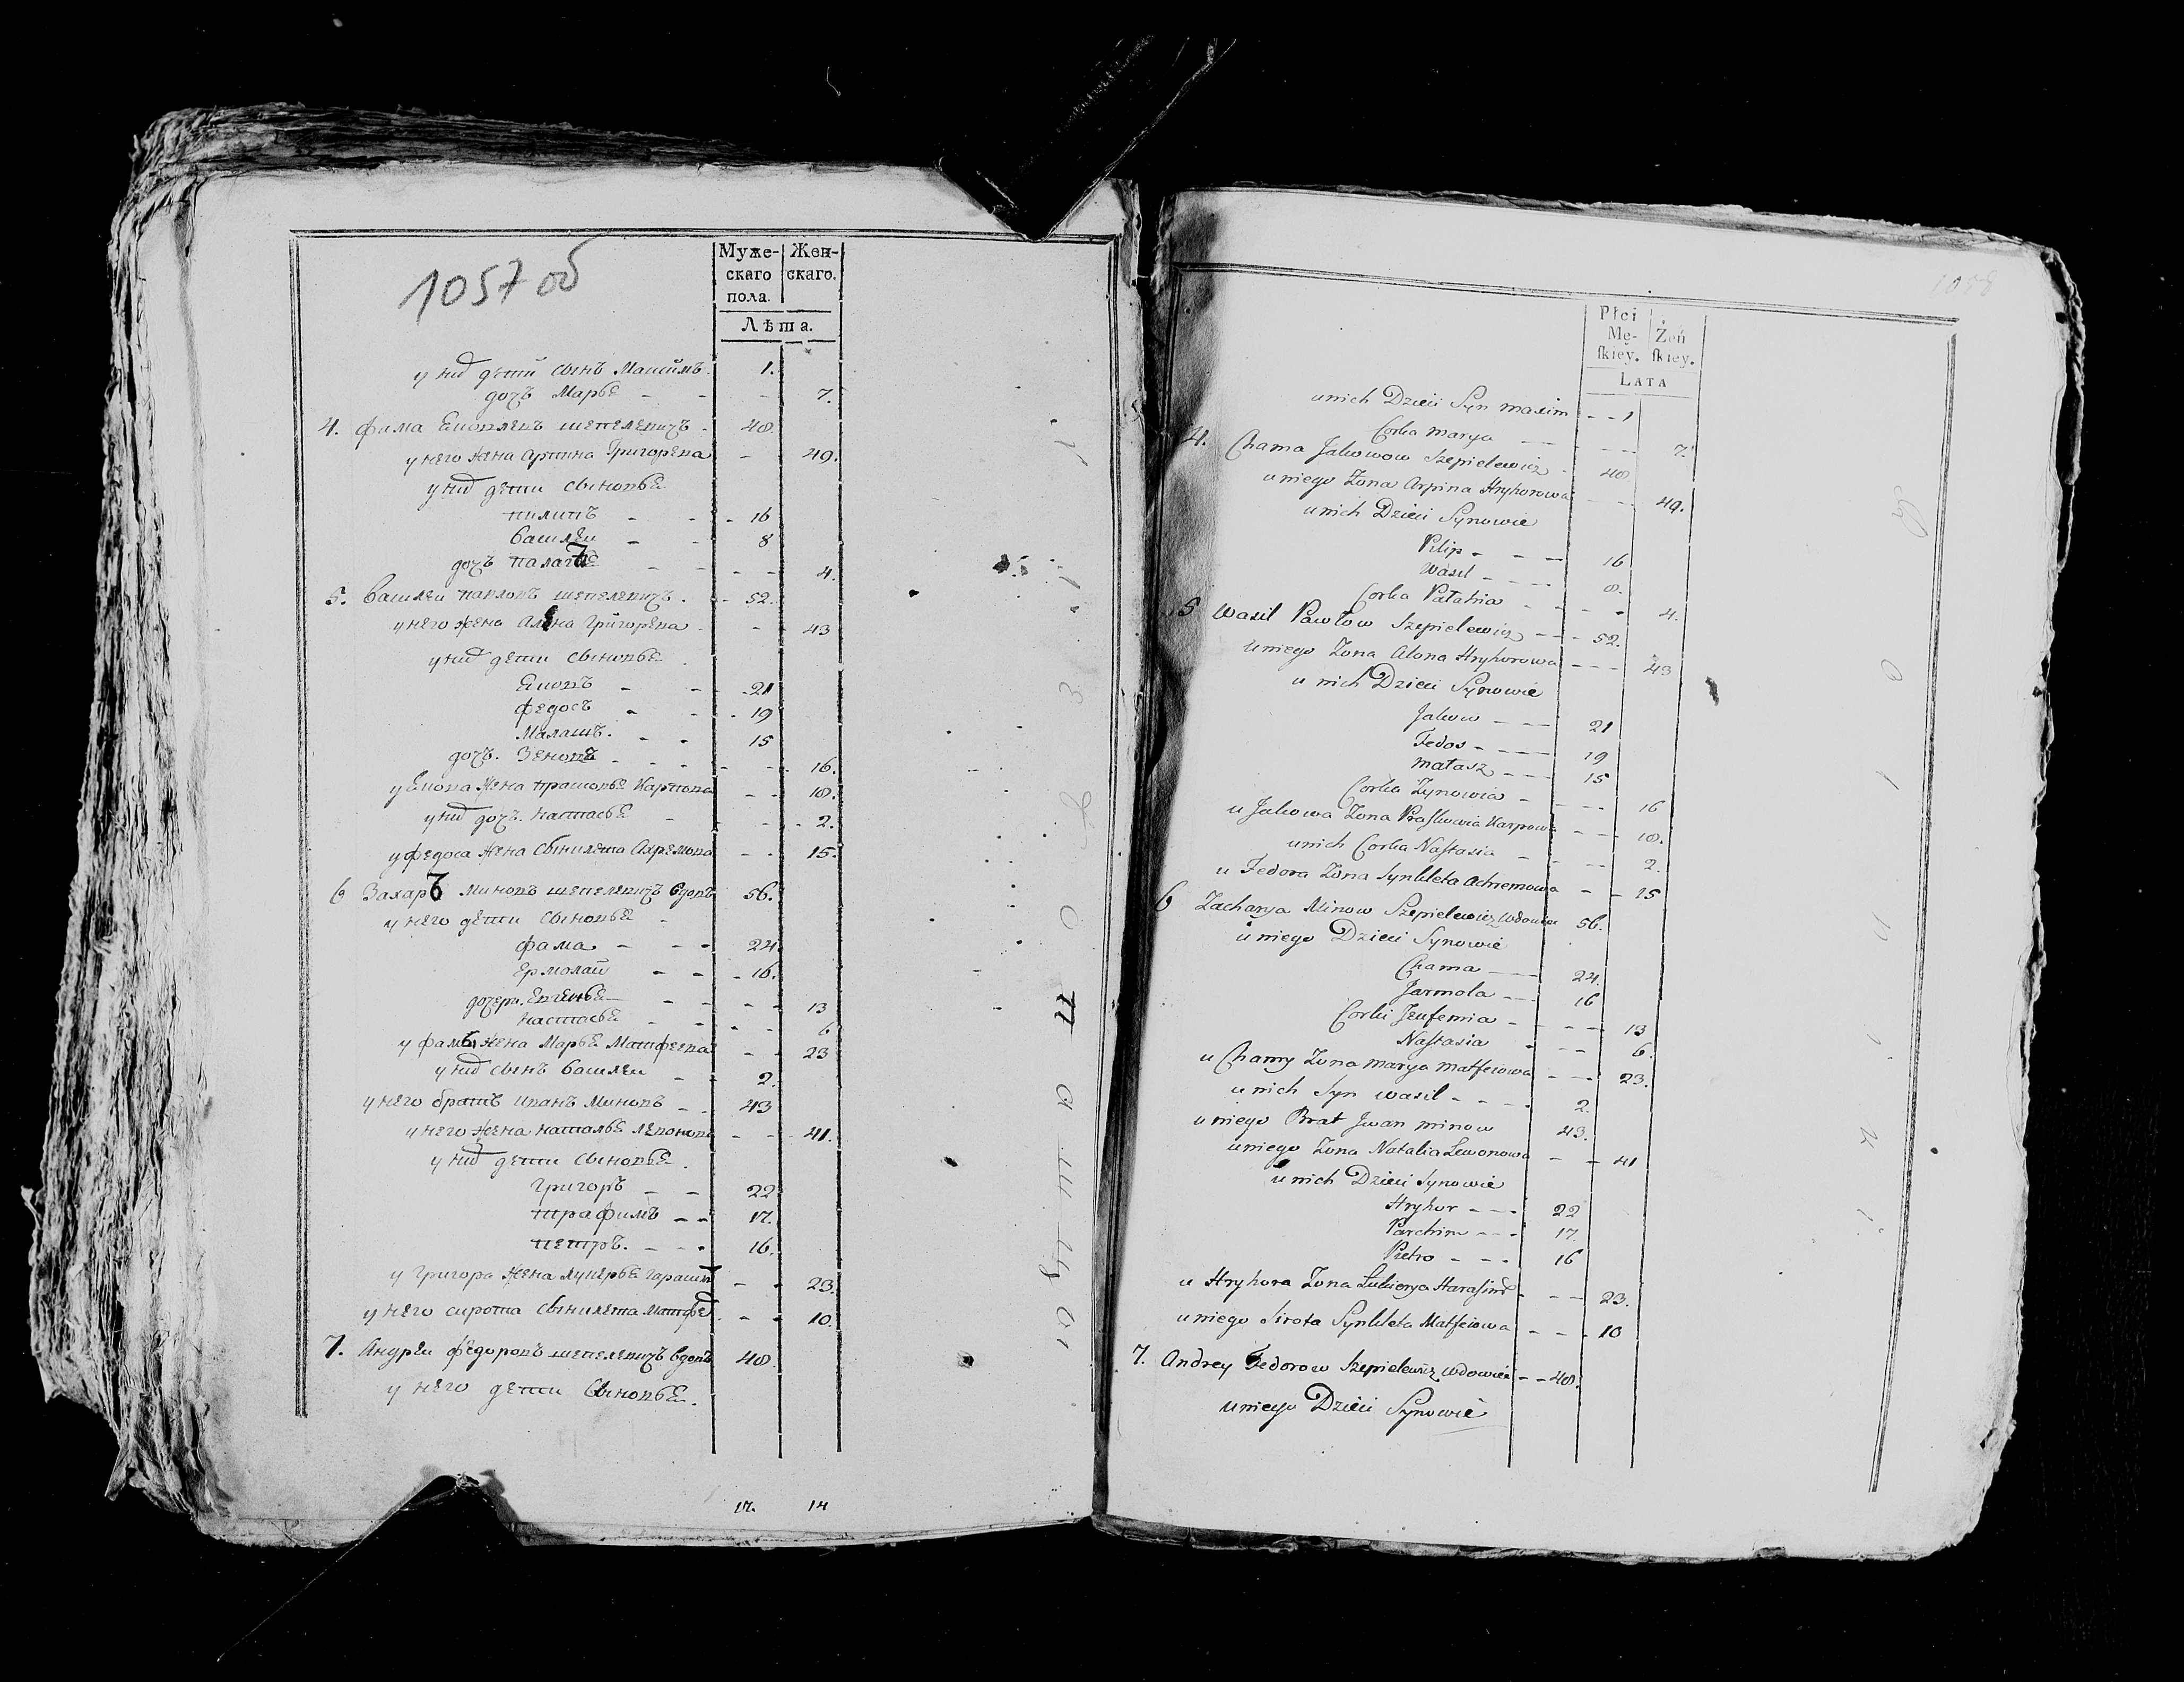 1057 об
Муже-
скаго
пола.
Жен-
скаго.
Лѣта.
у них дети сынъ Максимъ. 1.
дочъ Марья - - - 7.
4. Фама Яковлевъ шепелевичъ - 48.
у него жена Арпина Григорева - 49.
у них дети сыновья
пилипъ - - - 16
Василеи - - 8
дочъ Палагея - - - - 4.
5. Василеи павловъ шепелевичъ. - - 52.
у него жена Алена Григорева - - - 43
у них дети сыновья.
Яковъ - - - 21
Федосъ - - - 19
Малашъ. - - 15
дочъ. Зеновя - - - - - 16.
у Якова жена прасковья Карпова - - 18.
у них дочъ. настасья - - - 2.
у Федоса жена сынклета Ахремова - - 15.
6 Захаръ миновъ шепелевичъ вдовъ 56.
у него дети сыновья -
Фама - - - 24
Ермолаи - - - 16.
дочери. Евгенья - - - - 13
настасья - - - - 6
у Фамы жена Марья Матфеева - - 23
у них сынъ Василеи - - 2.
у него братъ иванъ миновъ - - 43
у него жена наталья левонова - - - 41.
у них дети сыновья.
Григоръ - - 22
трафимъ - - 17.
петръ. - - - 16.
у Григора жена лукерья Гарасим - - 23.
у него сирота сынклета матфе - - - 10.
7. Андреи Федоровъ шепелевичъ вдовъ 48.
у него дети Сыновья.
17. 14
1058
Płci
Mę-
ſkiey.
Żeń
ſkiey.
LATA
u nich Dzieci Syn maxim - - 1
Corka marya - - - - 7.
4. Chama Jakowow Szepielewicz - 48
u niego Żona Arpina Hryhorowa - - 49.
u nich Dzieci Synowie
Pilip - - - 16
Wasil - - - - 8.
Corka Pałahia - - - - 4.
5 Wasil Pawłow Szepielewicz - - - 52.
u niego Żona Alona Hryhorowa - - - 43
u nich Dzieci Synowie
Jakow - - - 21
Fedos - - - - 19
małasz - - - 15
Corka Zynowia - - - - 16
u Jakowa Żona Praſkowia Karpowa - - - 18.
u nich Corka Naſtasia - - - - 2.
u Fedora Żona Synkleta Achremowa - - 15
6 Zacharya Minow Szepielewicz Wdowiec 56.
u niego Dzieci Synowie
Chama - - - 24.
Jarmoła - - - 16
Corki Jeufemia - - - - - 13
Naſtasia - - - 6.
u Chamy Żona marya matfeiowa - - - 23.
u nich Syn wasil - - - - 2.
u niego Brat Jwan minow 43.
u niego Żona Natalia Lewonowa - - 41
u nich Dzieci Synowie
Hryhor - - - 22
Parchim - - - 17.
Pietro - - - 16
u Hryhora Żona Lukierya Harasim - - - 23.
u niego Sirota Synkleta Matfeiowa - - - 10
7. Andrey Fedorow Szepielewicz Wdowiec - - 48.
u niego Dzieci Synowie